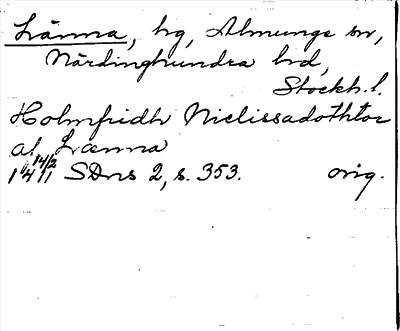 Länna, hg, Almunge sn,
Närdinghundra hd,
Stockh. l.
Holmfridh Niclissadothtor
af Lænna
14/2
1411 SDns 2, s. 353. orig.